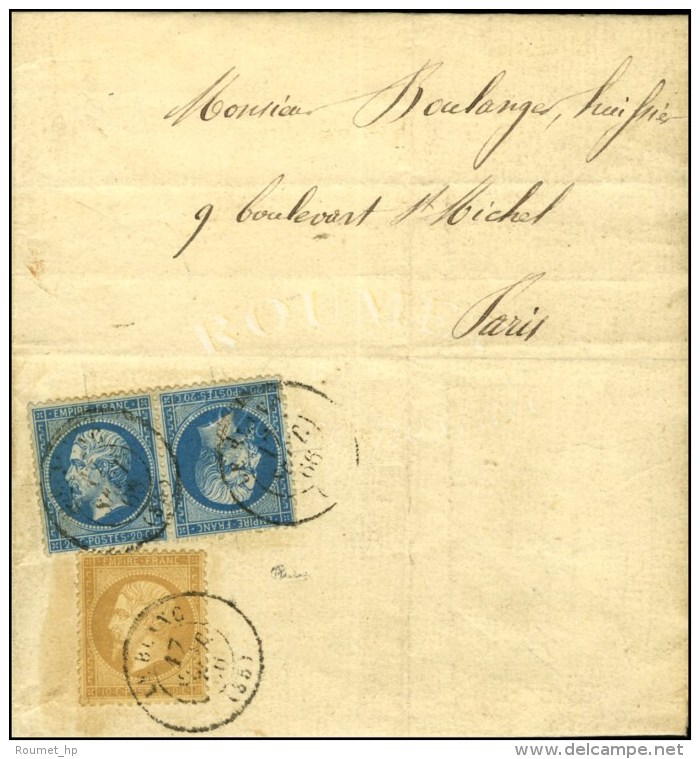 Monsieur Boulanger, huissier
9 boulevart St Michel
Paris
ROUMET
EMPIRE FRANC.
20 C POSTES 20 C
20 C POSTES 20 C
EMPIRE FRANC.
66
EMPIRE FRANC.
LE BLANC
17
(35)
Roumet_hp
www.delcampe.net